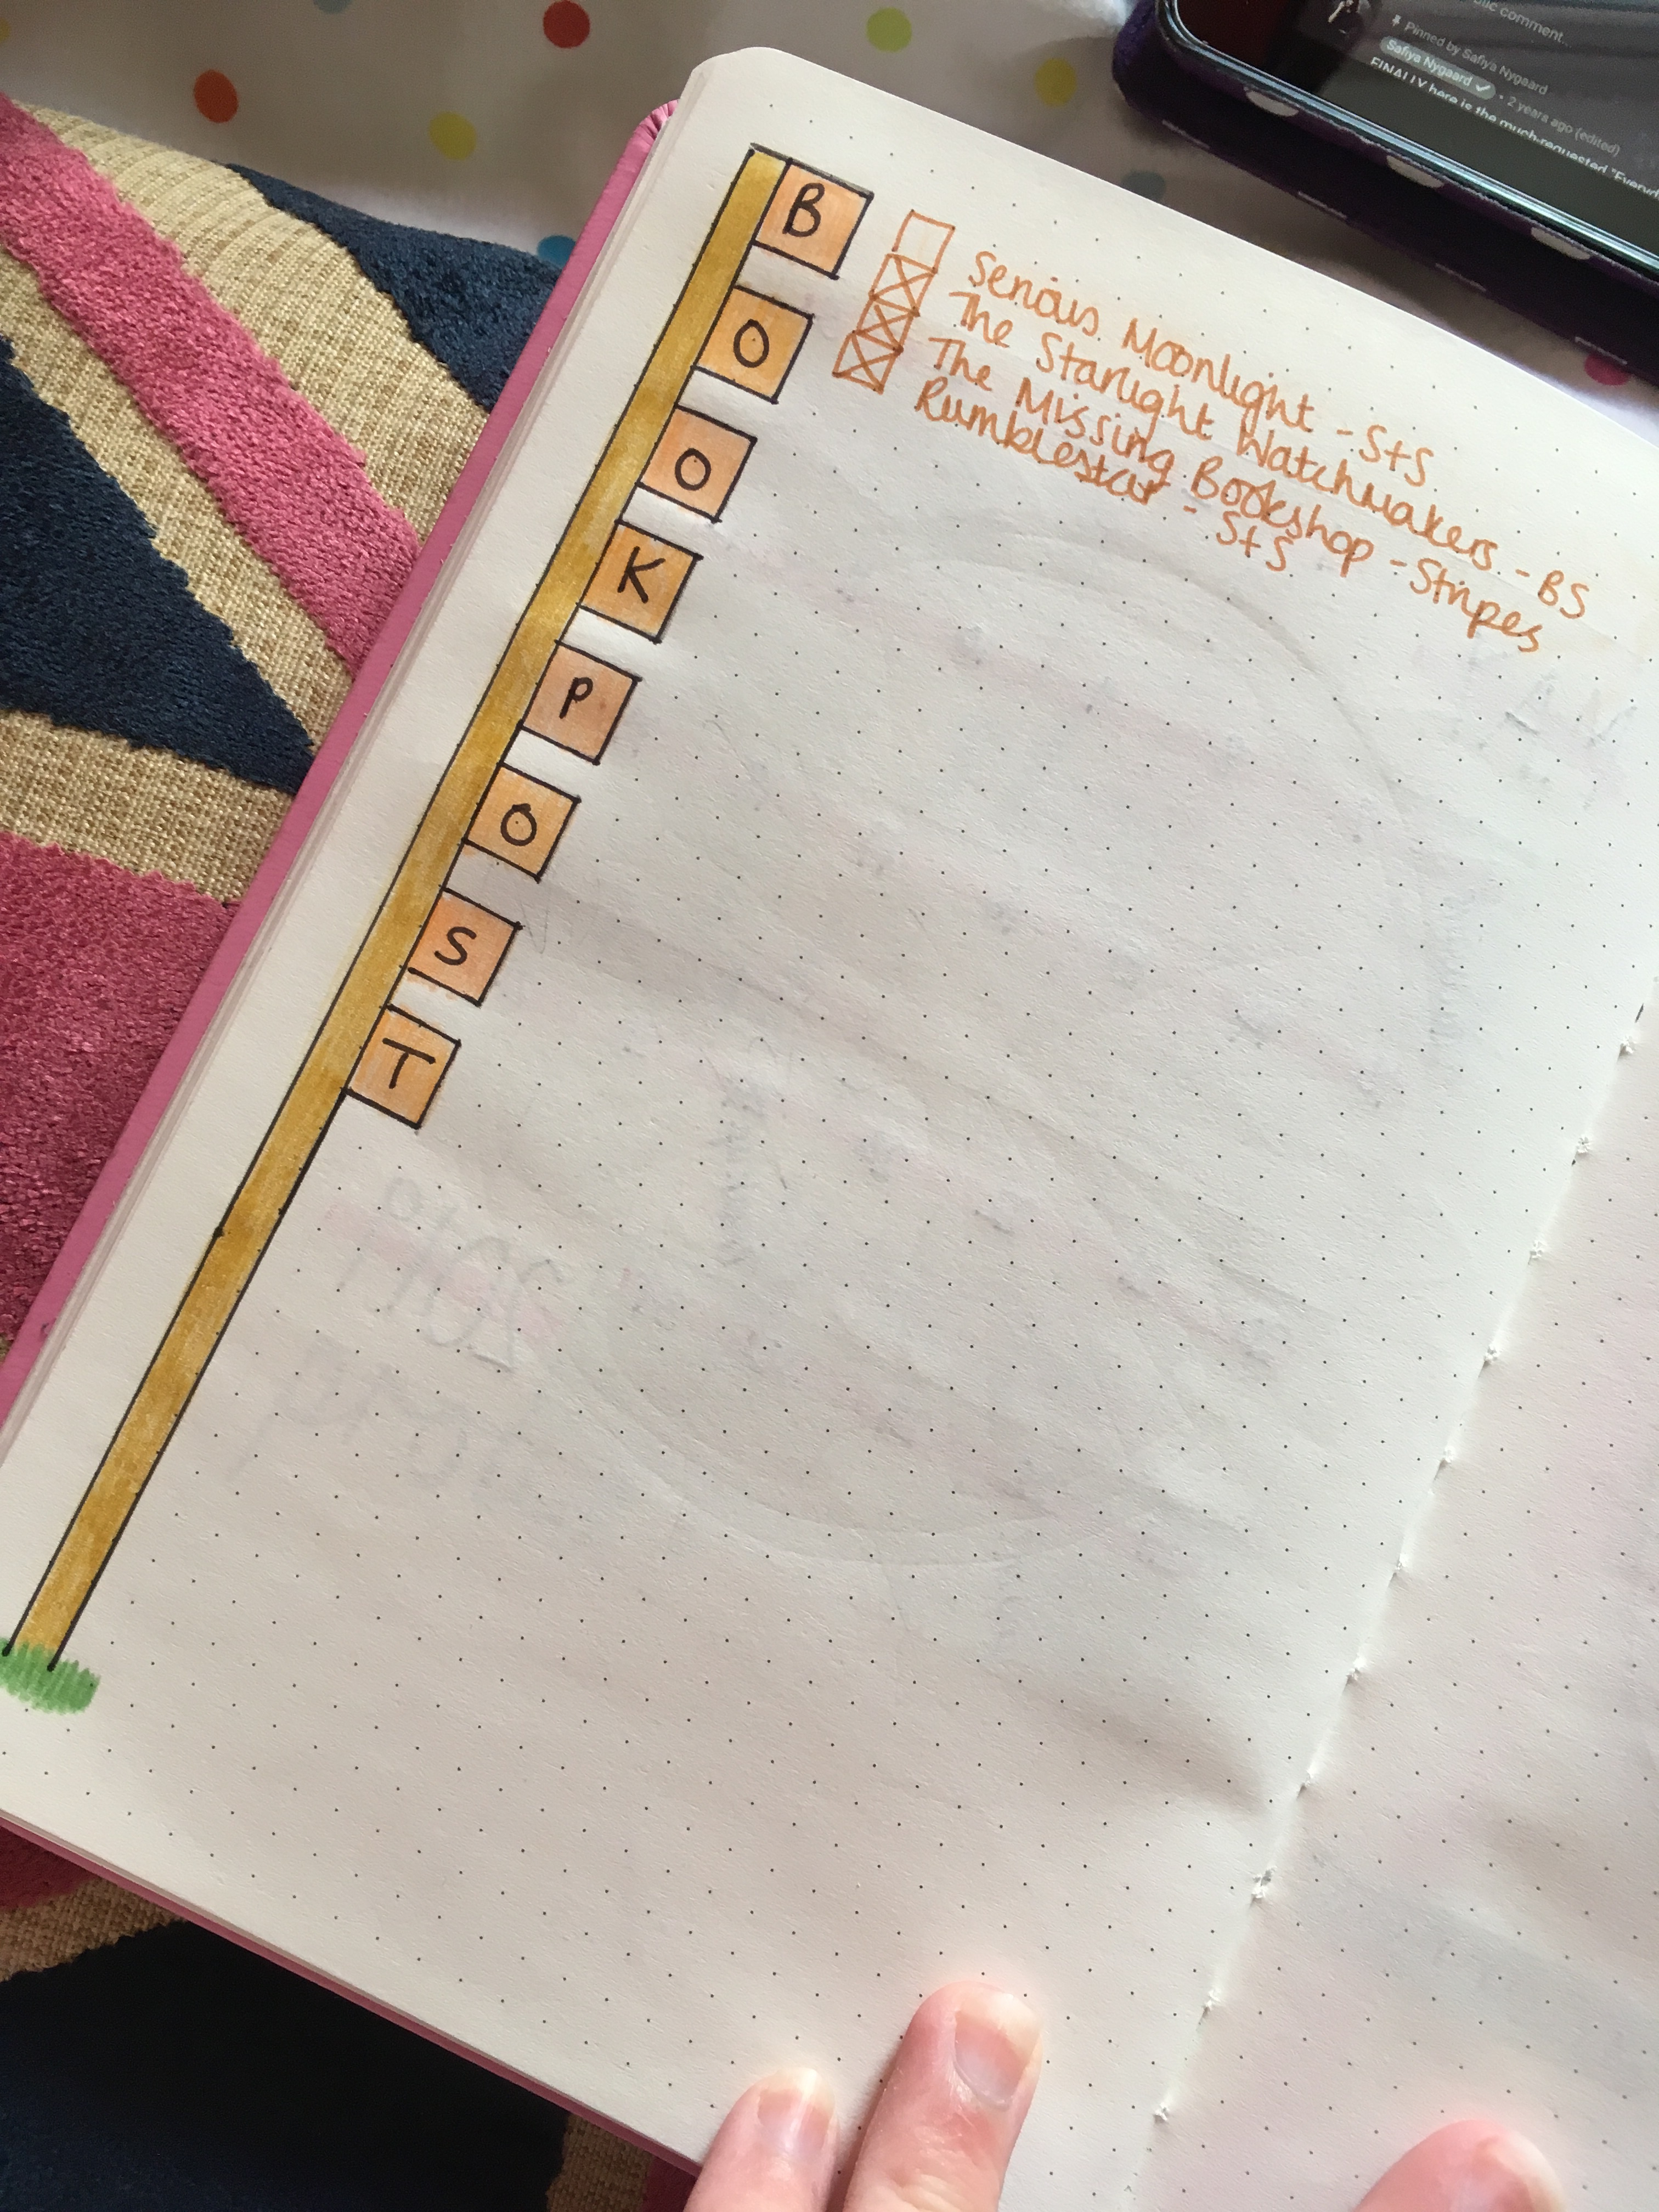 BOOKPOST
Serious Moonlight - S+S
The Starlight Watchmakers - BS
The Missing Bookshop - Stripes
Rumblestar - S+S
comment...
Pinned by Safiya Nygaard
Safiya Nygaard • 2 years ago (edited)
FINALLY here is the much-requested "Everyd